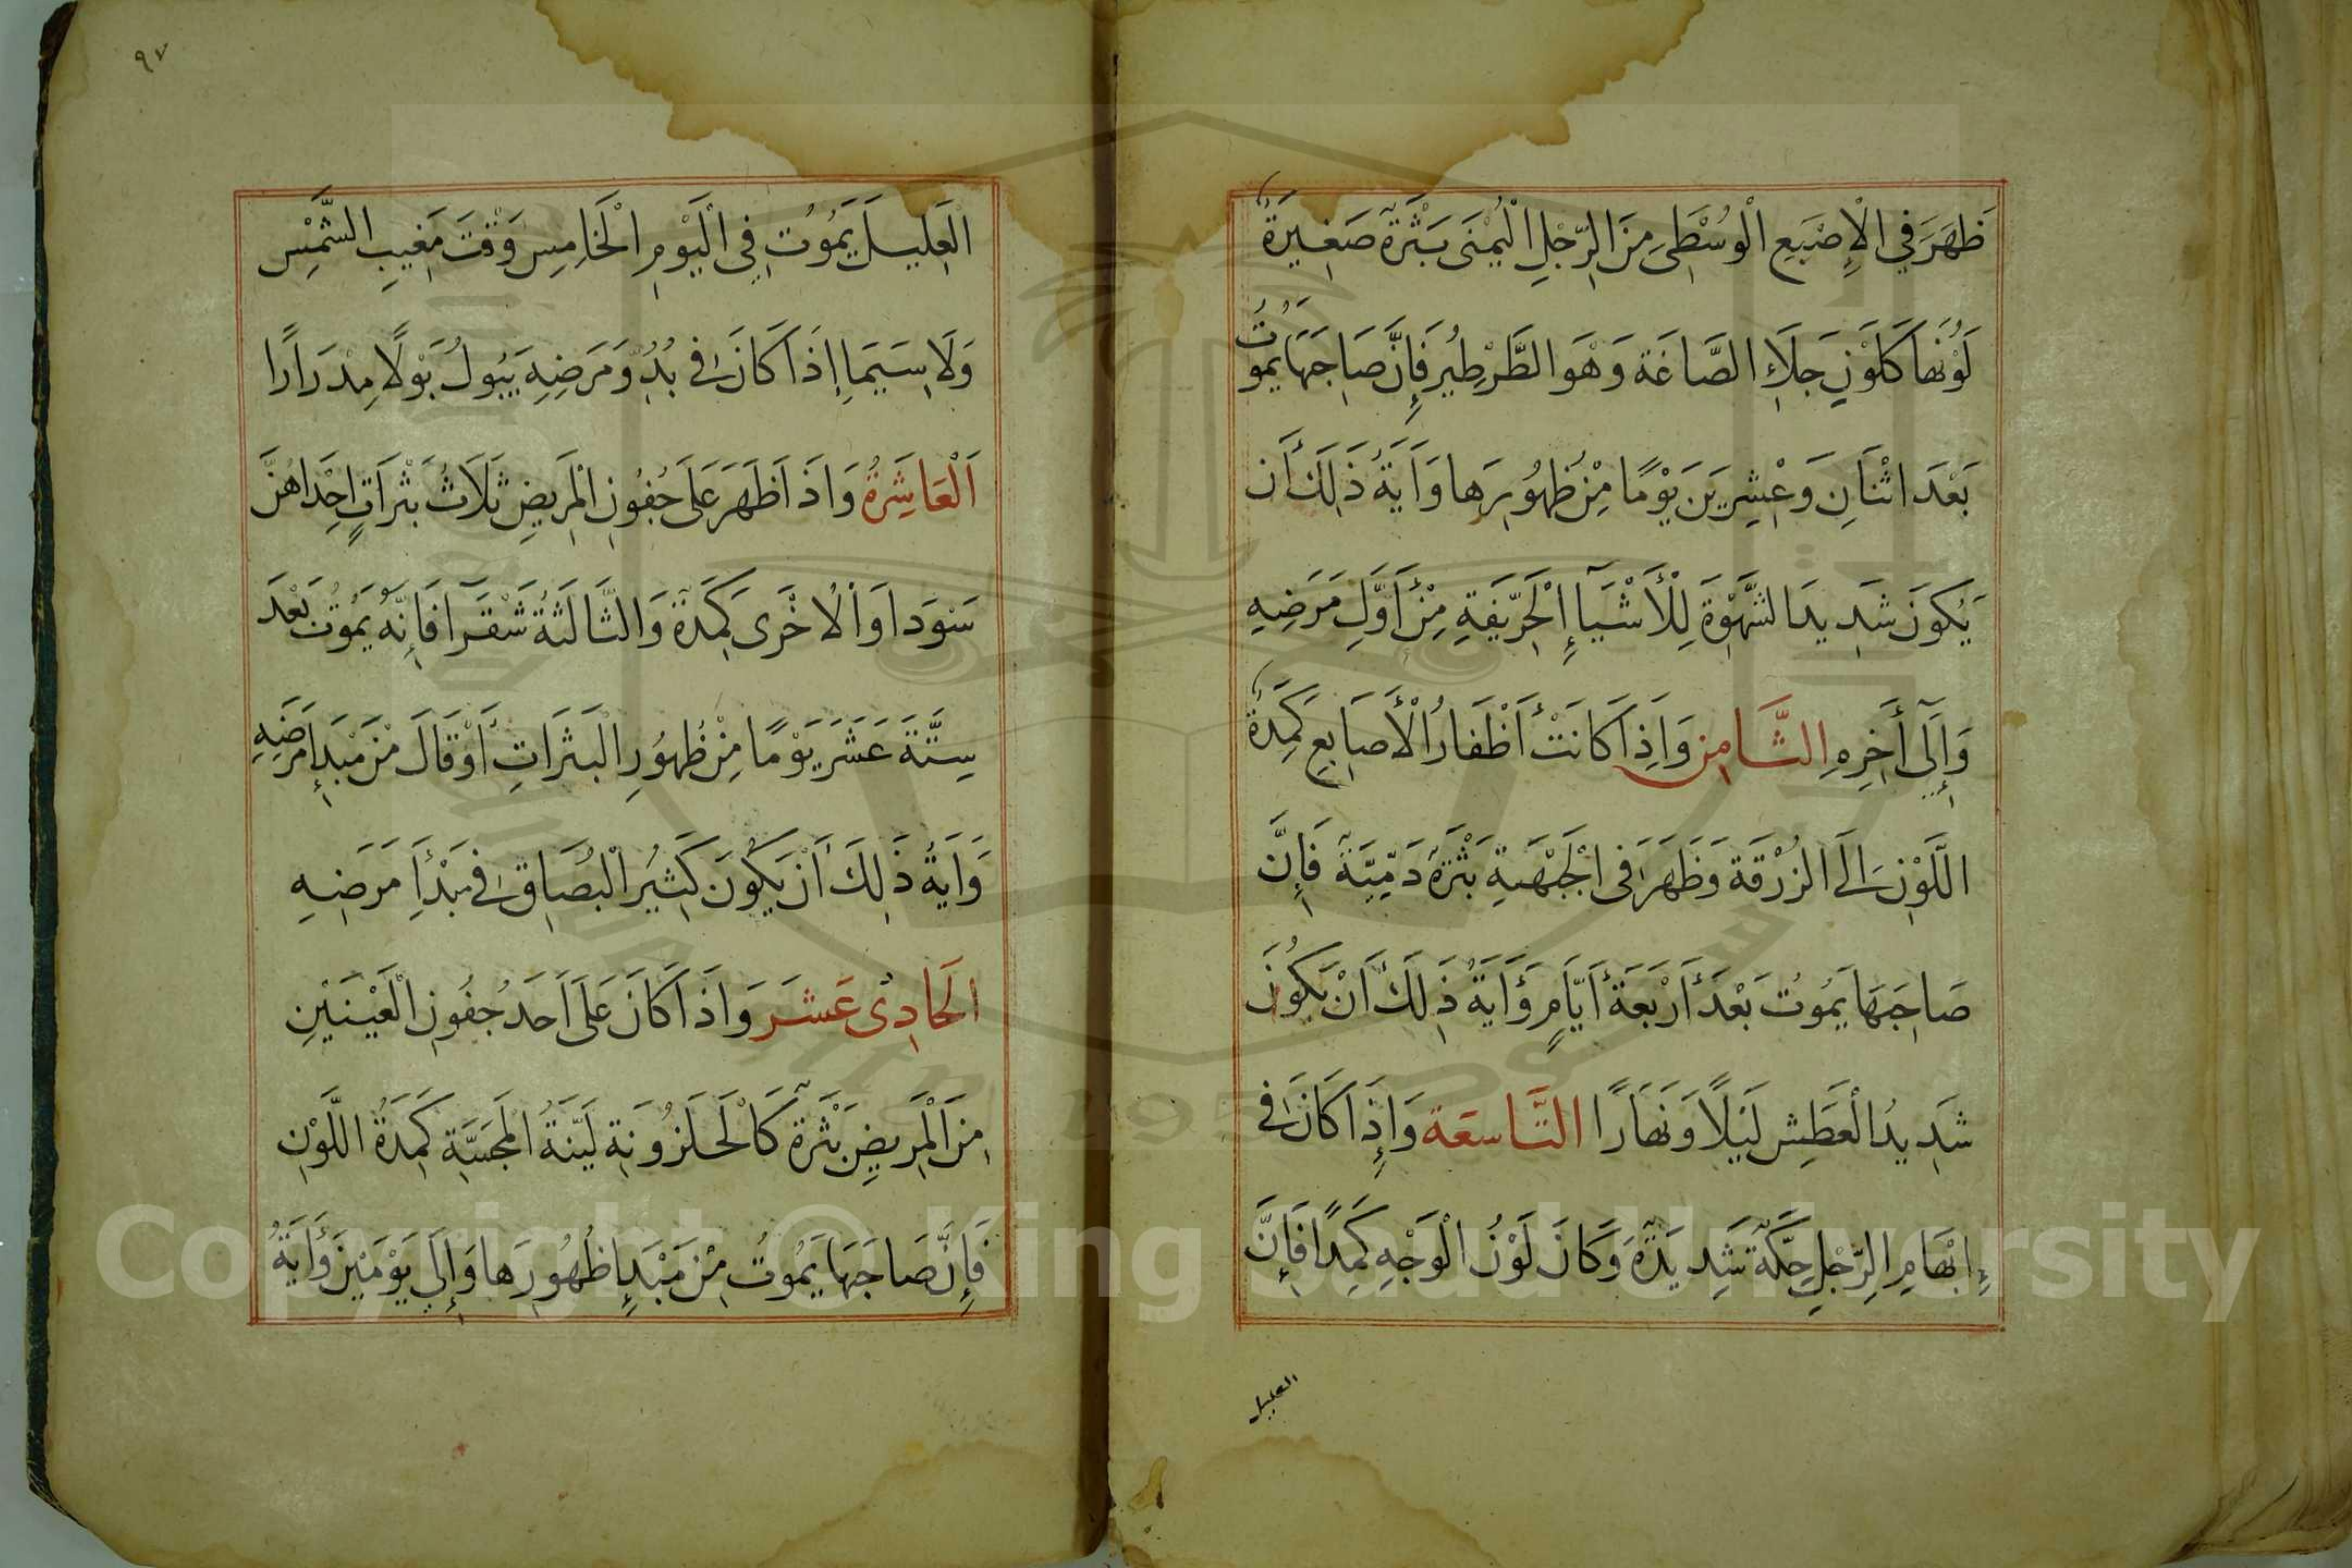 ظَهَرَ فِي الْإِصْبَعِ الْوُسْطَى مِنَ الرِّجْلِ الْيُمْنَى بَثْرَةٌ صَغِيرَةٌ
لَوْنُهَا كَلَوْنِ جَلَاءِ الصَّاغَة وَهَوَ الطَّرْطِيُر فَإِنَّ صَاحِبَهَا يَمُوتُ
بَعْدَ اثْنَانِ وَعْشِرِينَ يَوْمًا مِنْ ظُهُورِهَا وَآيَةُ ذَلِكَ أَن
يَكُونَ شَدِيدَ الشَّهْوَةَ لِلْأَشْيَآءِ الْحَرِّيفَةِ مِنْ أَوَّلِ مَرَضِهِ
وَإِلَى أَخِرِهِ الثَّامِن وَاَذِا كَانَتْ أَظْفَارُ الْأَصَابِعِ كَمِدَةُ
اللَّوْنِ اِلَى الزُرْقَة وَظَهَرَ فِى الْجَبْهَةِ بَثْرَةٌ دَمِّيَّةٌ فَإِنَّ
صَاحِبَهَا يَمُوتُ بَعْدَ أَرْبَعَةُ أَيَّامٍ وَأَيَةُ ذَلِكَ أَنْ يَكُونَ
شَدِيدُ الْعَطَشِ لَيْلًا وَنَهَارًا التَّاسعَة وَإِذَا كَانَ فِى
إِبْهَامِ الرِّجْلِ حِكَّةٌ شَدِيدَةٌ وَكَانَ لَوْنُ الْوَجْهِ كَمِدًا فَإِنَّ
العليل
٩٧
الْعَلِيلَ يَمُوُت فِي الْيَوْمِ الْخَامِسِ وَقْتَ مَغِيبِ الشَّمْسِ
وَلَا سِيَمَا إِذَا كَانَ فِى بُدُوِّ مَرَضِهِ يَبُولُ بَوْلًا مِدْرَارًا
اَلْعَاشِرَةُ وَاذَا ظَهَرَ عَلَى جُفُونِ الْمَرِيضِ ثَلَاثُ بَثْرَاتٍ اِحِْدَاهُنَّ
سَوْدَا وَالْاخْرَى كَمِدَةٌ وَالثَّالَثَةُ شَقْرَآ فَاِنَّهُ يَمُوتُ بَعْدَ
سِتَّةَ عَشَرَ يَوْمًا مِنْ ظُهُورِ الْبَثَرَاتِ أَوْ قَالَ مْنَ مَبْدَإِ مَرَضِهِ
وَاَيَةُ ذَلِكَ أَنْ يَكُونَ كَثِيُر الْبُصَاقِ فِى مَبْدَأِ مَرَضِهِ
الَحَادِىْ عَشَر وَاذَا كَانَ عَلَى اَحَدُ جُفُونِ الْعَيْنَيْنِ
مِنَ الْمَرِيضِ بَثْرَةٌ كَالْحَلَزُونَةِ لَيِّنَةُ الْمَجَسَّةِ كَمِدَةُ اللَّوْنِ
فَإِنَّ صَاحِبَهَا يَمُوتُ مِنْ مَبْدَإِ ظُهُورِهَا وَإِلَى يَوْمَيْنَ وَأَيَةُ
Copyright © King Saud University